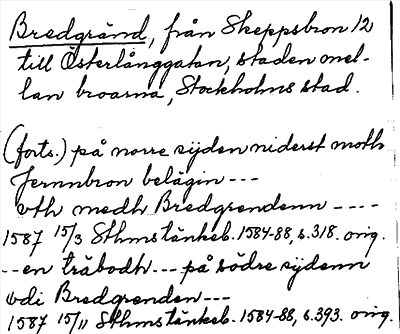 Bredgränd, från Skeppsbron 12
till Österlånggatan, staden mel-
lan broarna, Stockholms stad.
(forts.) på norre sijden niderst moth
Jernnbron belägin ---
vth medh Bredgrendenn ----
1587 15/3 Sthms tänkeb. 1584-88, s. 318. orig.
-- en träbodh --- på södre sijdenn
vdi Bredgrenden ---
1587 15/11 Sthms tänkeb. 1584-88, s. 393. orig.